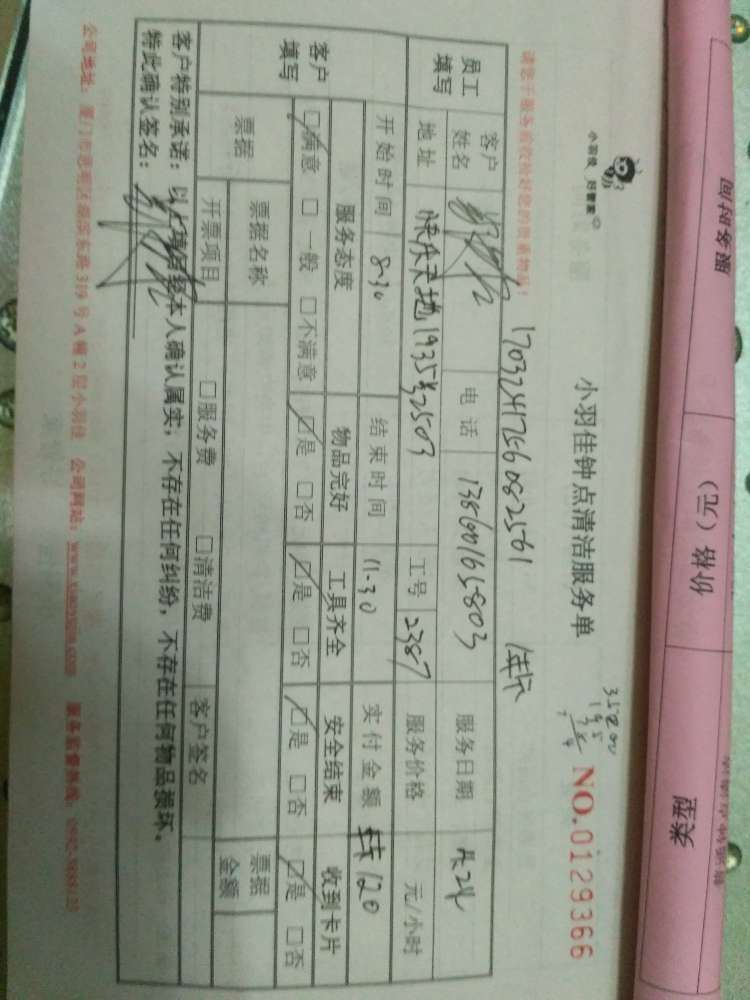 服务时间 价格（元） 类型
小羽佳 好管家
小羽佳钟点清洁服务单
NO.0129366
请您于服务前收拾好您的贵重物品！
员工填写
客户姓名
电话 13860165803
服务日期
地址 快乐天地1935号2503
工号 2387
服务价格 元/小时
开始时间 8-30
结束时间 11-30
实付金额 120
客户填写
服务态度 物品完好 工具齐全 安全结束 收到卡片
□满意 □一般 □不满意 □是 □否 □是 □否 □是 □否 □是 □否
票据
票据名称
□服务费 □清洁费
客户签名
票据金额
开票项目
客户特别承诺：以上填写经本人确认属实，不存在任何纠纷，不存在任何物品损坏。
特此确认签名：
公司地址： 319号A幢2层小羽佳 公司网站： 服务监督热线：